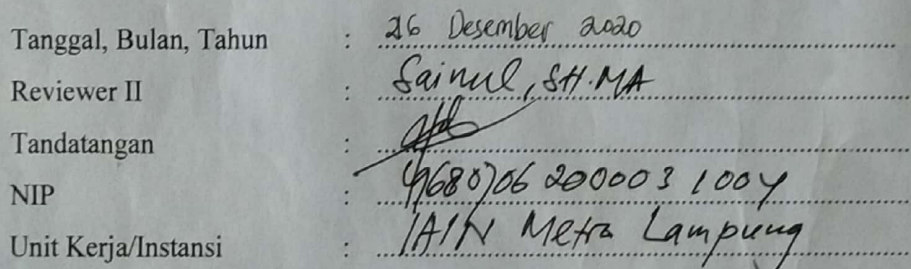 Tanggal, Bulan, Tahun : 26 Desember 2020
Reviewer II : Sainul, SH.MA
Tandatangan :
NIP : 19680706 200003 1 004
Unit Kerja/Instansi : IAIN Metro Lampung